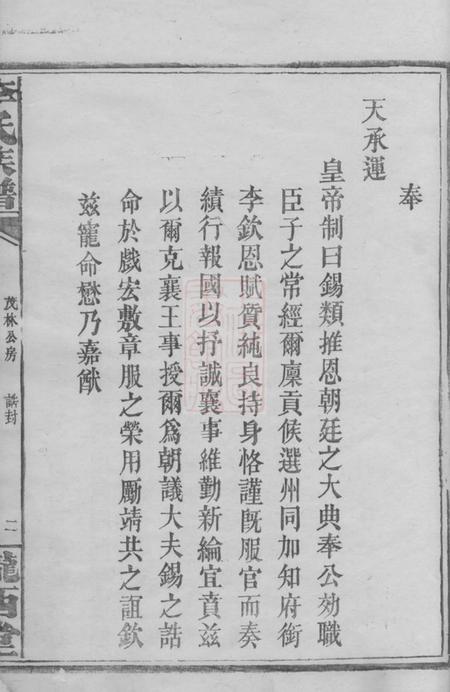 奉
天承運
皇帝制曰錫類推恩朝廷之大典奉公効職
臣子之常經爾廩貢候選州同加知府銜
李欽恩賦質純良持身恪謹旣服官而奏
績行報國以抒誠襄事維勤新綸宜賁兹
以爾克襄王事授爾爲朝議大夫錫之誥
命於戲宏敷章服之榮用勵靖共之誼欽
兹寵命懋乃嘉猷
李氏族譜
茂林公房
誥封
二
隴西堂